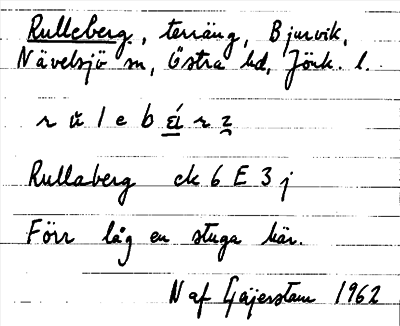 Rulleberg, terräng, Bjurvik,
Nävelsjö sn, Östra hd, Jönk. l.
r ŭ l e b
Rullaberg ek 6 E 3 j
Förr låg en stuga här.
N af Geijerstam 1962